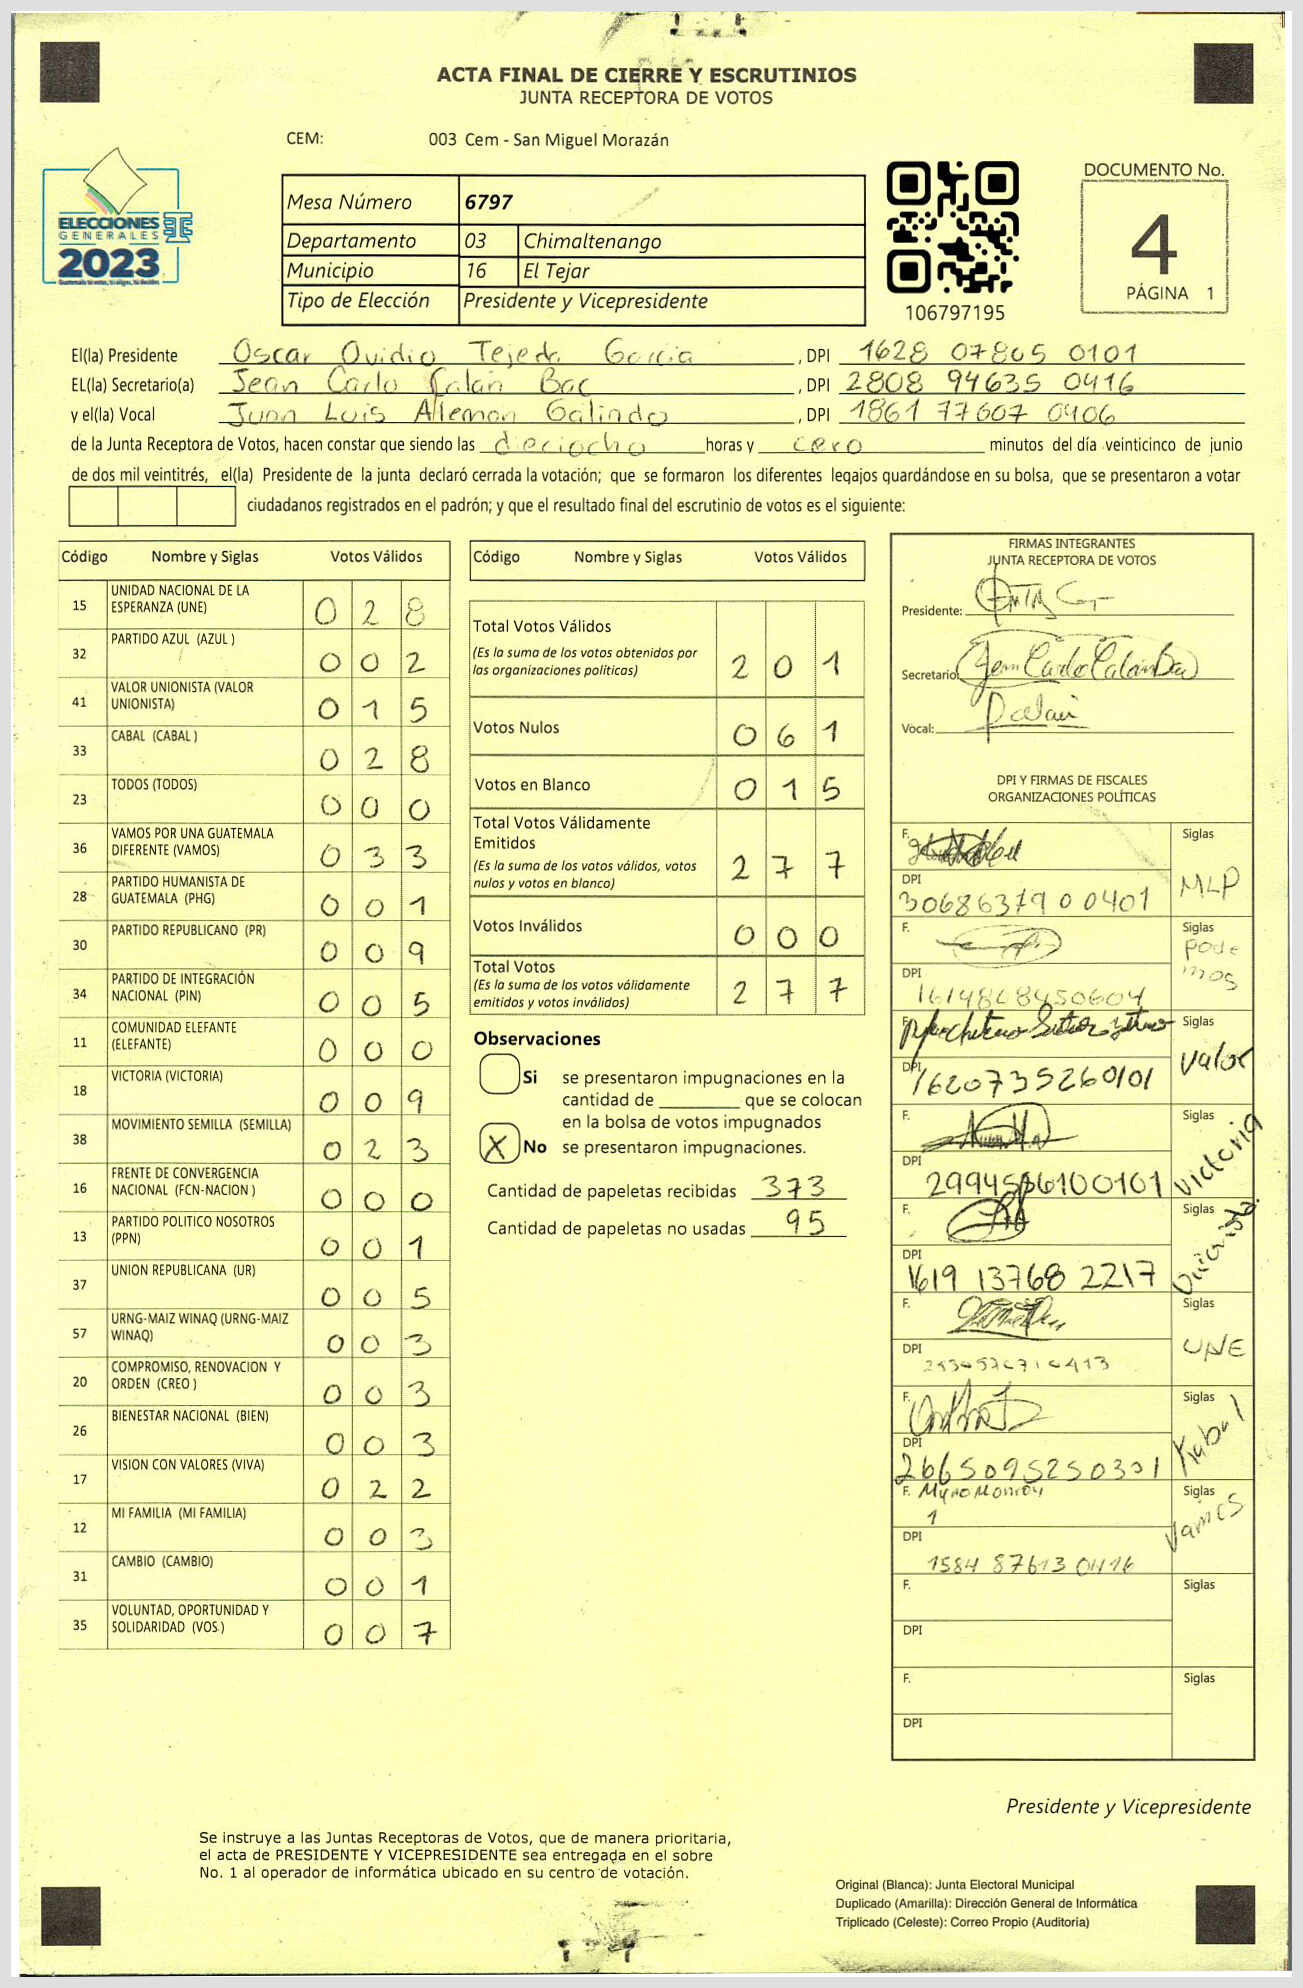 ACTA FINAL DE CIERRE Y ESCRUTINIOS
JUNTA RECEPTORA DE VOTOS
CEM: 003 Cem - San Miguel Morazán
ELECCIONES
GENERALES
2023
Mesa Número 6797
Departamento 03 Chimaltenango
Municipio 16 El Tejar
Tipo de Elección Presidente y Vicepresidente
106797195
DOCUMENTO No.
4
PÁGINA 1
El(la) Presidente Oscar Ovidio Tejeda Garcia, DPI 1628 07805 0101
EL(la) Secretario(a) Jean Carlo Calan Bac, DPI 2808 94635 0416
y el(la) Vocal Juan Luis Aleman Galindo, DPI 1861 77607 0406
de la Junta Receptora de Votos, hacen constar que siendo las dieciocho horas y cero minutos del día veinticinco de junio
de dos mil veintitrés, el(la) Presidente de la junta declaró cerrada la votación; que se formaron los diferentes legajos guardándose en su bolsa, que se presentaron a votar
ciudadanos registrados en el padrón; y que el resultado final del escrutinio de votos es el siguiente:
Código Nombre y Siglas Votos Válidos
15 UNIDAD NACIONAL DE LA ESPERANZA (UNE) 0 2 8
32 PARTIDO AZUL (AZUL ) 0 0 2
41 VALOR UNIONISTA (VALOR UNIONISTA) 0 1 5
33 CABAL (CABAL ) 0 2 8
23 TODOS (TODOS) 0 0 0
36 VAMOS POR UNA GUATEMALA DIFERENTE (VAMOS) 0 3 3
28 PARTIDO HUMANISTA DE GUATEMALA (PHG) 0 0 1
30 PARTIDO REPUBLICANO (PR) 0 0 9
34 PARTIDO DE INTEGRACIÓN NACIONAL (PIN) 0 0 5
11 COMUNIDAD ELEFANTE (ELEFANTE) 0 0 0
18 VICTORIA (VICTORIA) 0 0 9
38 MOVIMIENTO SEMILLA (SEMILLA) 0 2 3
16 FRENTE DE CONVERGENCIA NACIONAL (FCN-NACION ) 0 0 0
13 PARTIDO POLITICO NOSOTROS (PPN) 0 0 1
37 UNION REPUBLICANA (UR) 0 0 5
57 URNG-MAIZ WINAQ (URNG-MAIZ WINAQ) 0 0 3
20 COMPROMISO, RENOVACION Y ORDEN (CREO ) 0 0 3
26 BIENESTAR NACIONAL (BIEN) 0 0 3
17 VISION CON VALORES (VIVA) 0 2 2
12 MI FAMILIA (MI FAMILIA) 0 0 3
31 CAMBIO (CAMBIO) 0 0 1
35 VOLUNTAD, OPORTUNIDAD Y SOLIDARIDAD (VOS.) 0 0 7
Código Nombre y Siglas Votos Válidos
Total Votos Válidos 2 0 1
(Es la suma de los votos obtenidos por
las organizaciones políticas)
Votos Nulos 0 6 1
Votos en Blanco 0 1 5
Total Votos Válidamente
Emitidos 2 7 7
(Es la suma de los votos válidos, votos
nulos y votos en blanco)
Votos Inválidos 0 0 0
Total Votos 2 7 7
(Es la suma de los votos válidamente
emitidos y votos inválidos)
Observaciones
Si se presentaron impugnaciones en la
cantidad de ________ que se colocan
en la bolsa de votos impugnados
X No se presentaron impugnaciones.
Cantidad de papeletas recibidas 373
Cantidad de papeletas no usadas 95
FIRMAS INTEGRANTES
JUNTA RECEPTORA DE VOTOS
Presidente:
Secretario: Jean Carlo Calan Bac
Vocal:
DPI Y FIRMAS DE FISCALES
ORGANIZACIONES POLÍTICAS
F. Siglas MLP
DPI 30686379 0 0401
F. Siglas Podemos
DPI
F. Siglas Valor
DPI 1620735260101
F. Siglas Victoria
DPI
F. Siglas
DPI 1619 13768 2217
F. Siglas UNE
DPI
F. Siglas Kabal
DPI 2665095250301
F. Siglas Vamos
DPI 1584 87613 0416
F. Siglas
DPI
F. Siglas
DPI
Presidente y Vicepresidente
Se instruye a las Juntas Receptoras de Votos, que de manera prioritaria,
el acta de PRESIDENTE Y VICEPRESIDENTE sea entregada en el sobre
No. 1 al operador de informática ubicado en su centro de votación.
Original (Blanca): Junta Electoral Municipal
Duplicado (Amarilla): Dirección General de Informática
Triplicado (Celeste): Correo Propio (Auditoría)